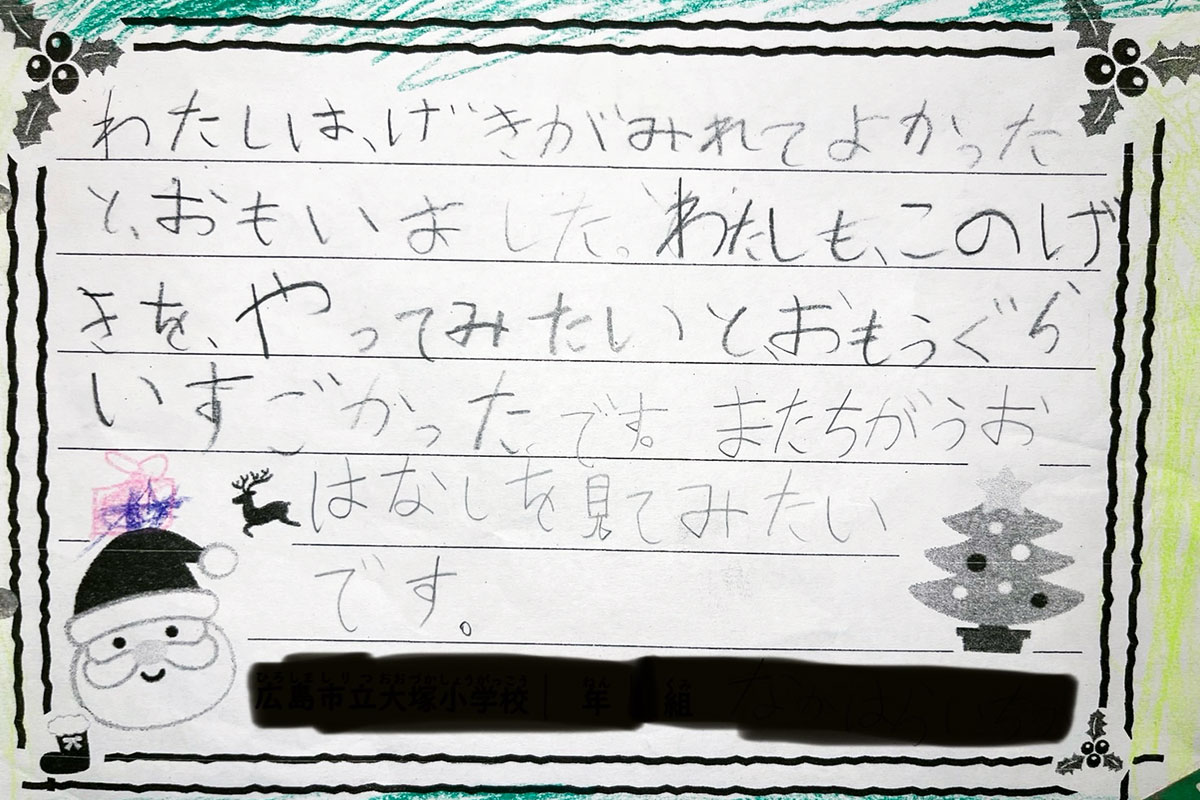 わたしは、げきがみれてよかった
と、おもいました。わたしも、このげ
きを、やってみたいと、おもうぐら
いすごかった、です。またちがうお
はなしを見てみたい
です。